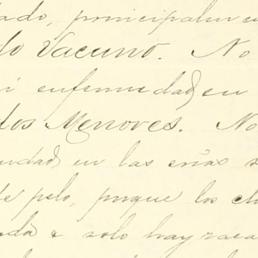 tado, principalm
do Vacuno. No
enfermedad en
dos Menores. No
en las crias s
pelo, porque los ch
solo hay raca